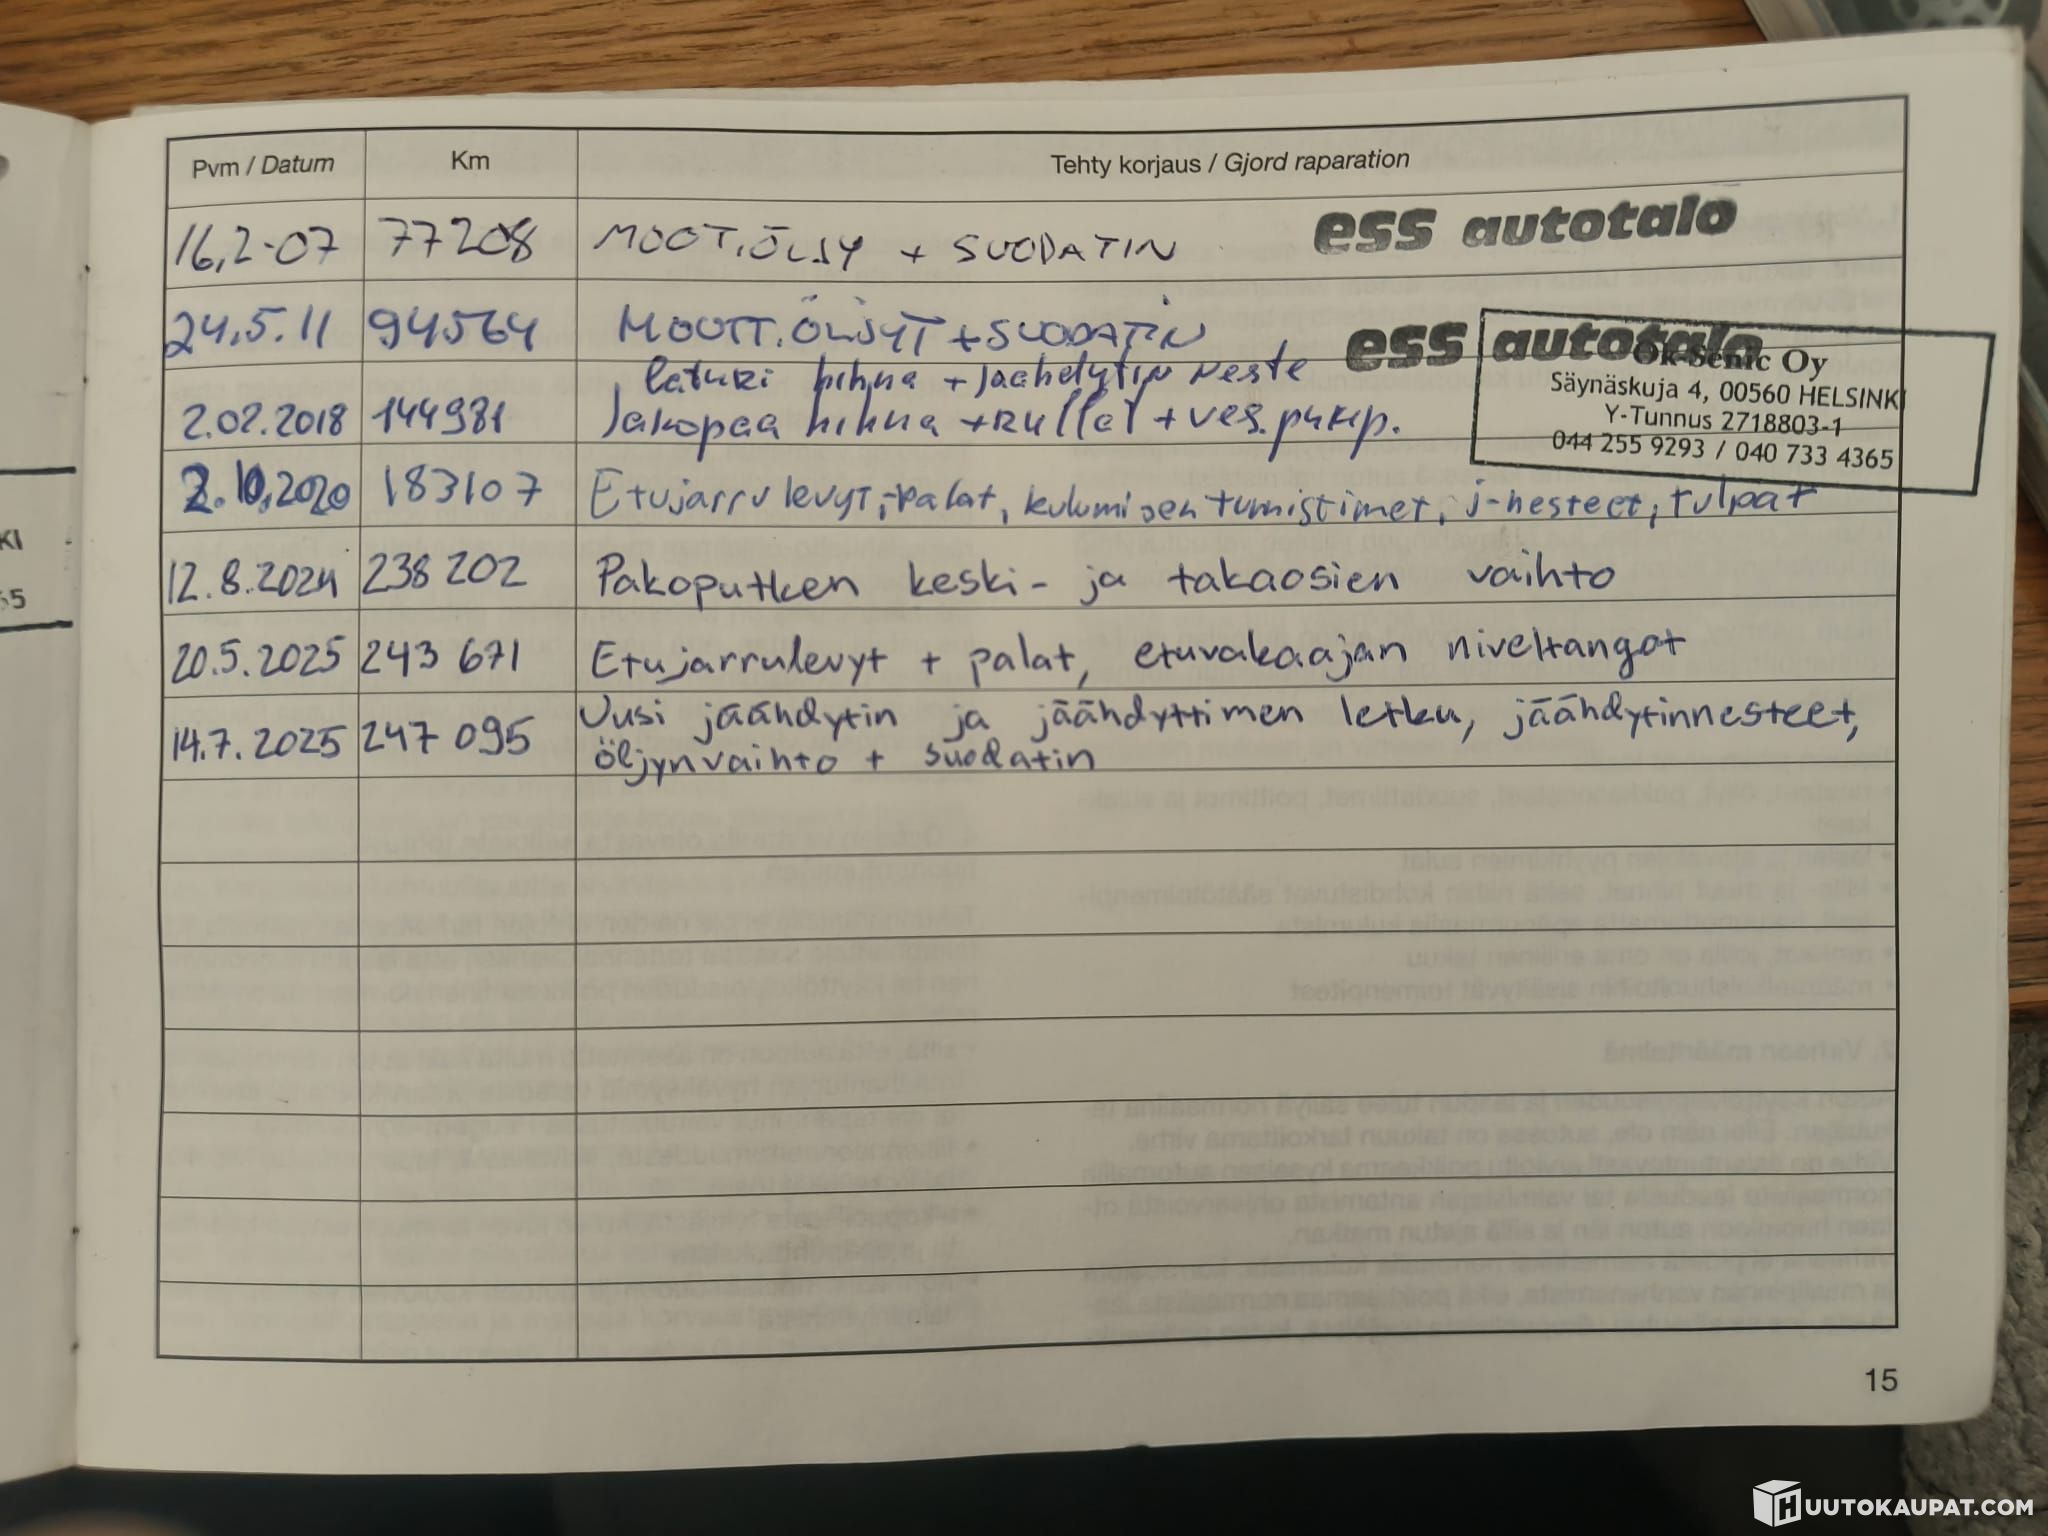 Pvm / Datum Km Tehty korjaus / Gjord raparation
16.2-07 77208 MOOT.ÖLJY + SUODATIN ess autotalo
24.5.11 94564 MOOTT.ÖLJYT + SUODATIN ess autotalo
Laturi hihna + jäähdytin neste
2.02.2018 144981 Jakopaa hihna + Rullat + ves.pump.
Ok-Senic Oy
Säynäskuja 4, 00560 HELSINKI
Y-Tunnus 2718803-1
044 255 9293 / 040 733 4365
2.10.2020 183107 Etujarrulevyt,-palat, kulumisen tunnistimet, j-nesteet, tulpat
12.8.2024 238 202 Pakoputken keski- ja takaosien vaihto
20.5.2025 243 671 Etujarrulevyt + palat, etuvakaajan niveltangot
14.7.2025 247 095 Uusi jäähdytin ja jäähdyttimen letku, jäähdytinnesteet,
öljynvaihto + suodatin
15
KI
65
HUUTOKAUPAT.COM